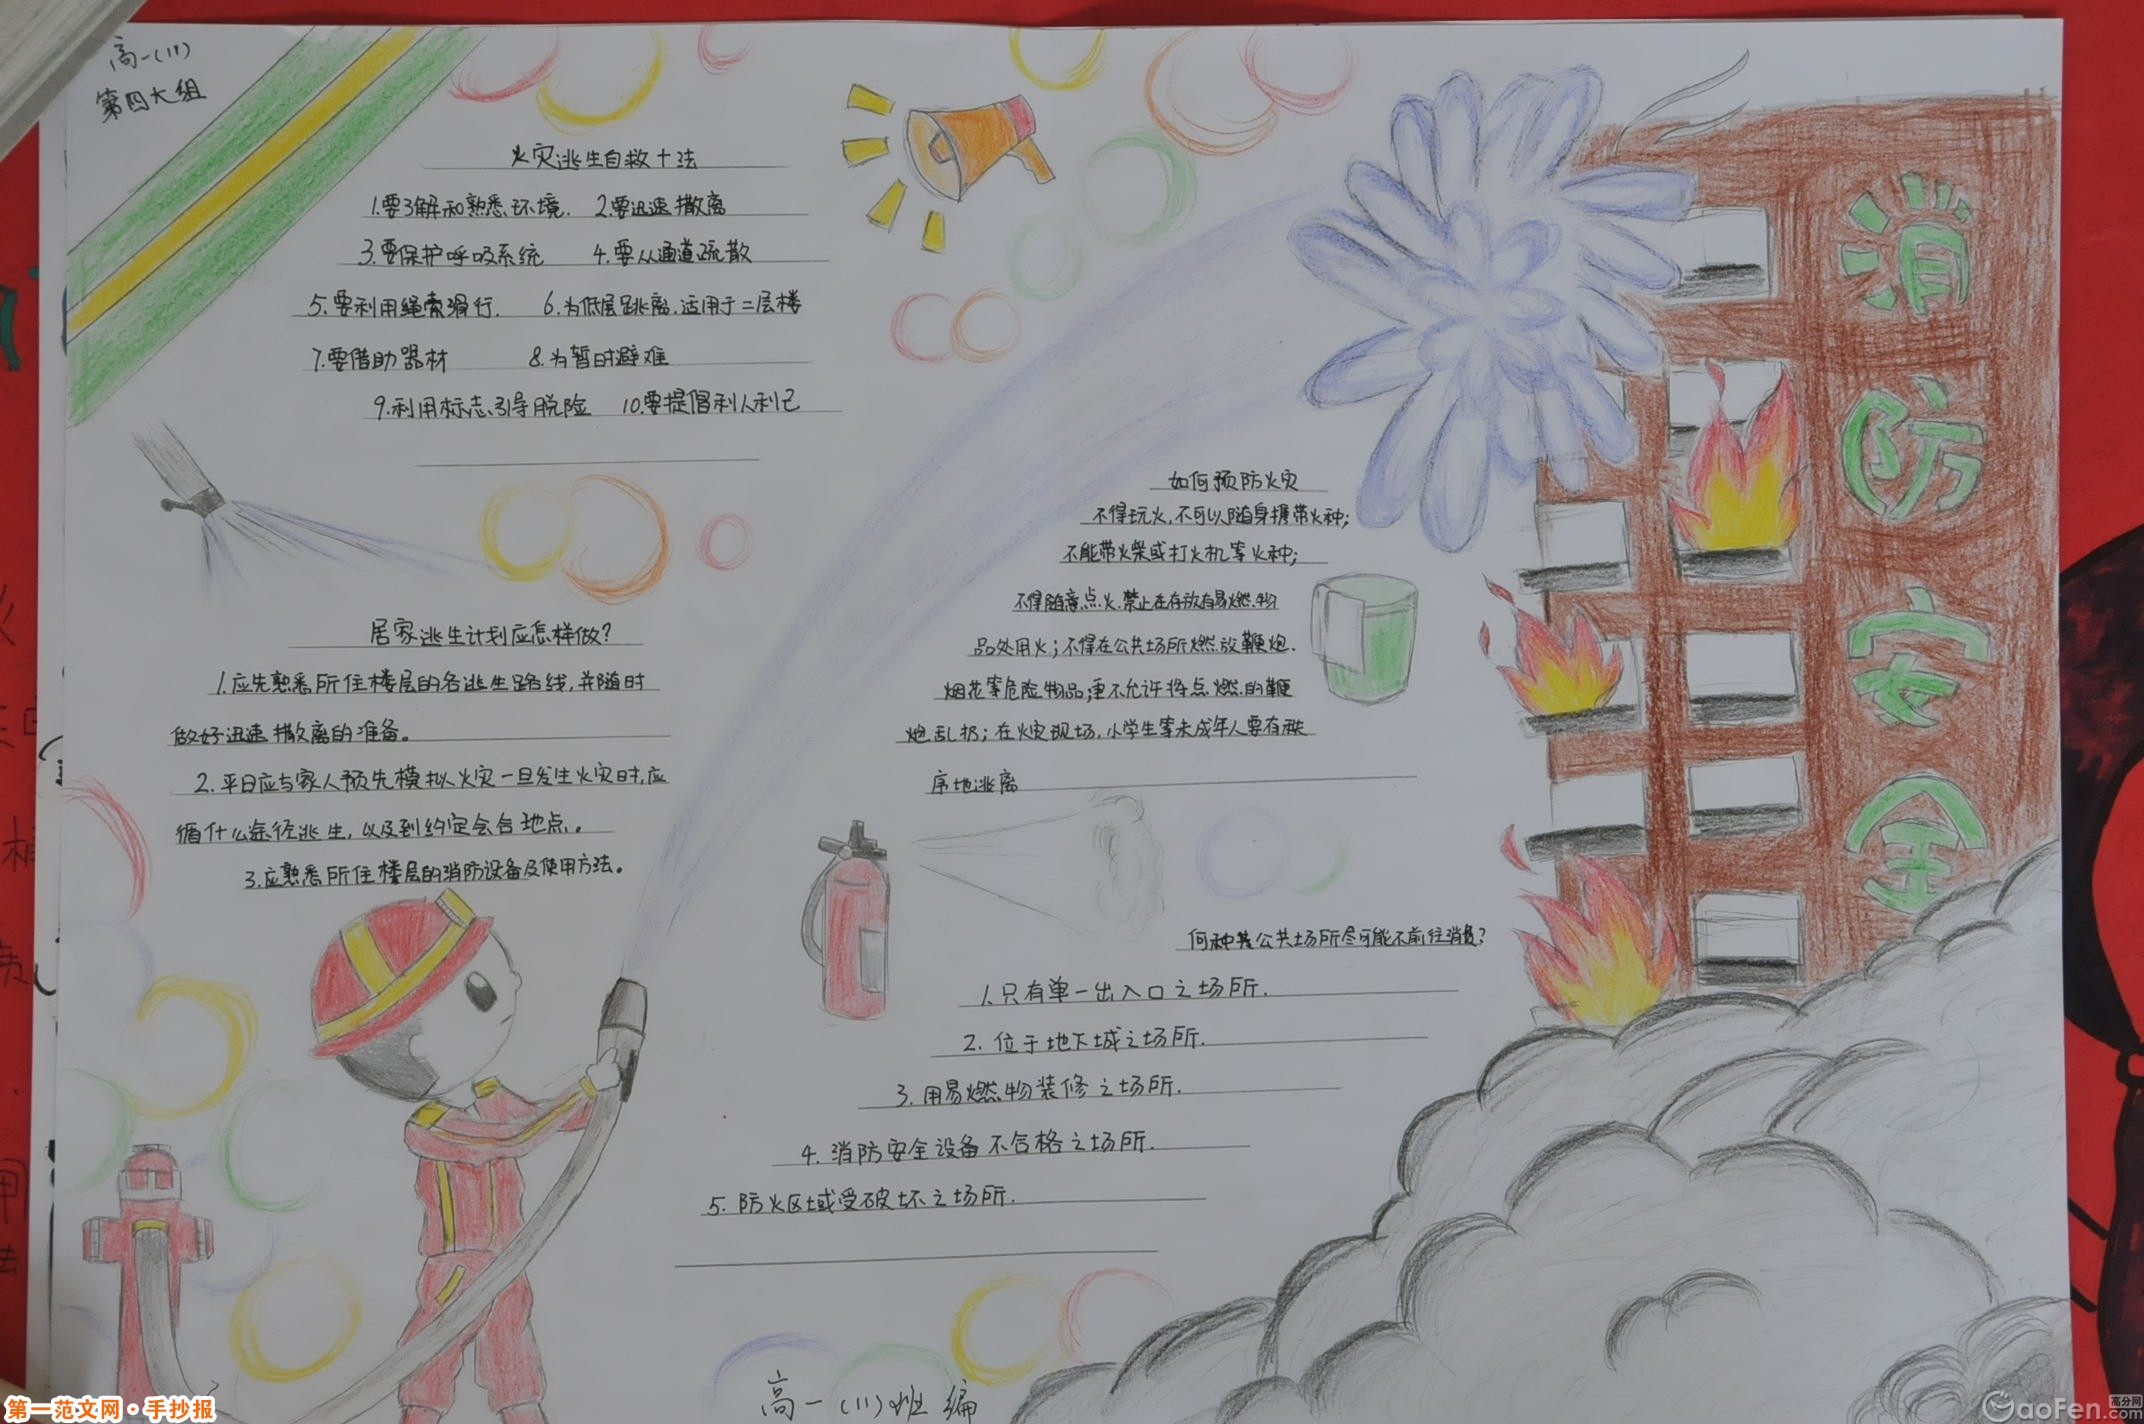 高一(11)
第四大组
火灾逃生自救十法
1.要了解和熟悉环境. 2.要迅速撤离
3.要保护呼吸系统 4.要从通道疏散
5.要利用绳索滑行. 6.为低层跳离.适用于二层楼
7.要借助器材 8.为暂时避难
9.利用标志引导脱险 10.要提倡利人利己
居家逃生计划应怎样做?
1.应先熟悉所住楼层的各逃生路线,并随时
做好迅速撤离的准备。
2.平日应与家人预先模拟火灾一旦发生火灾时,应
循什么途径逃生,以及到约定会合地点。
3.应熟悉所住楼层的消防设备及使用方法。
如何预防火灾
不得玩火,不可以随身携带火种;
不能带火柴或打火机等火种;
不得随意点火.禁止在存放有易燃.物
品处用火;不得在公共场所燃.放鞭炮.
烟花等危险物品;更不允许将点.燃.的鞭
炮乱扔;在火灾现场,小学生等未成年人要有秩
序地逃离
何种类公共场所尽可能不前往消费?
1.只有单一出入口之场所.
2.位于地下城之场所.
3.用易燃物装修之场所.
4.消防安全设备不合格之场所.
5.防火区域受破坏之场所.
消
防
安
全
高一(11)班编
第一范文网·手抄报
GaoFen.com
高分网